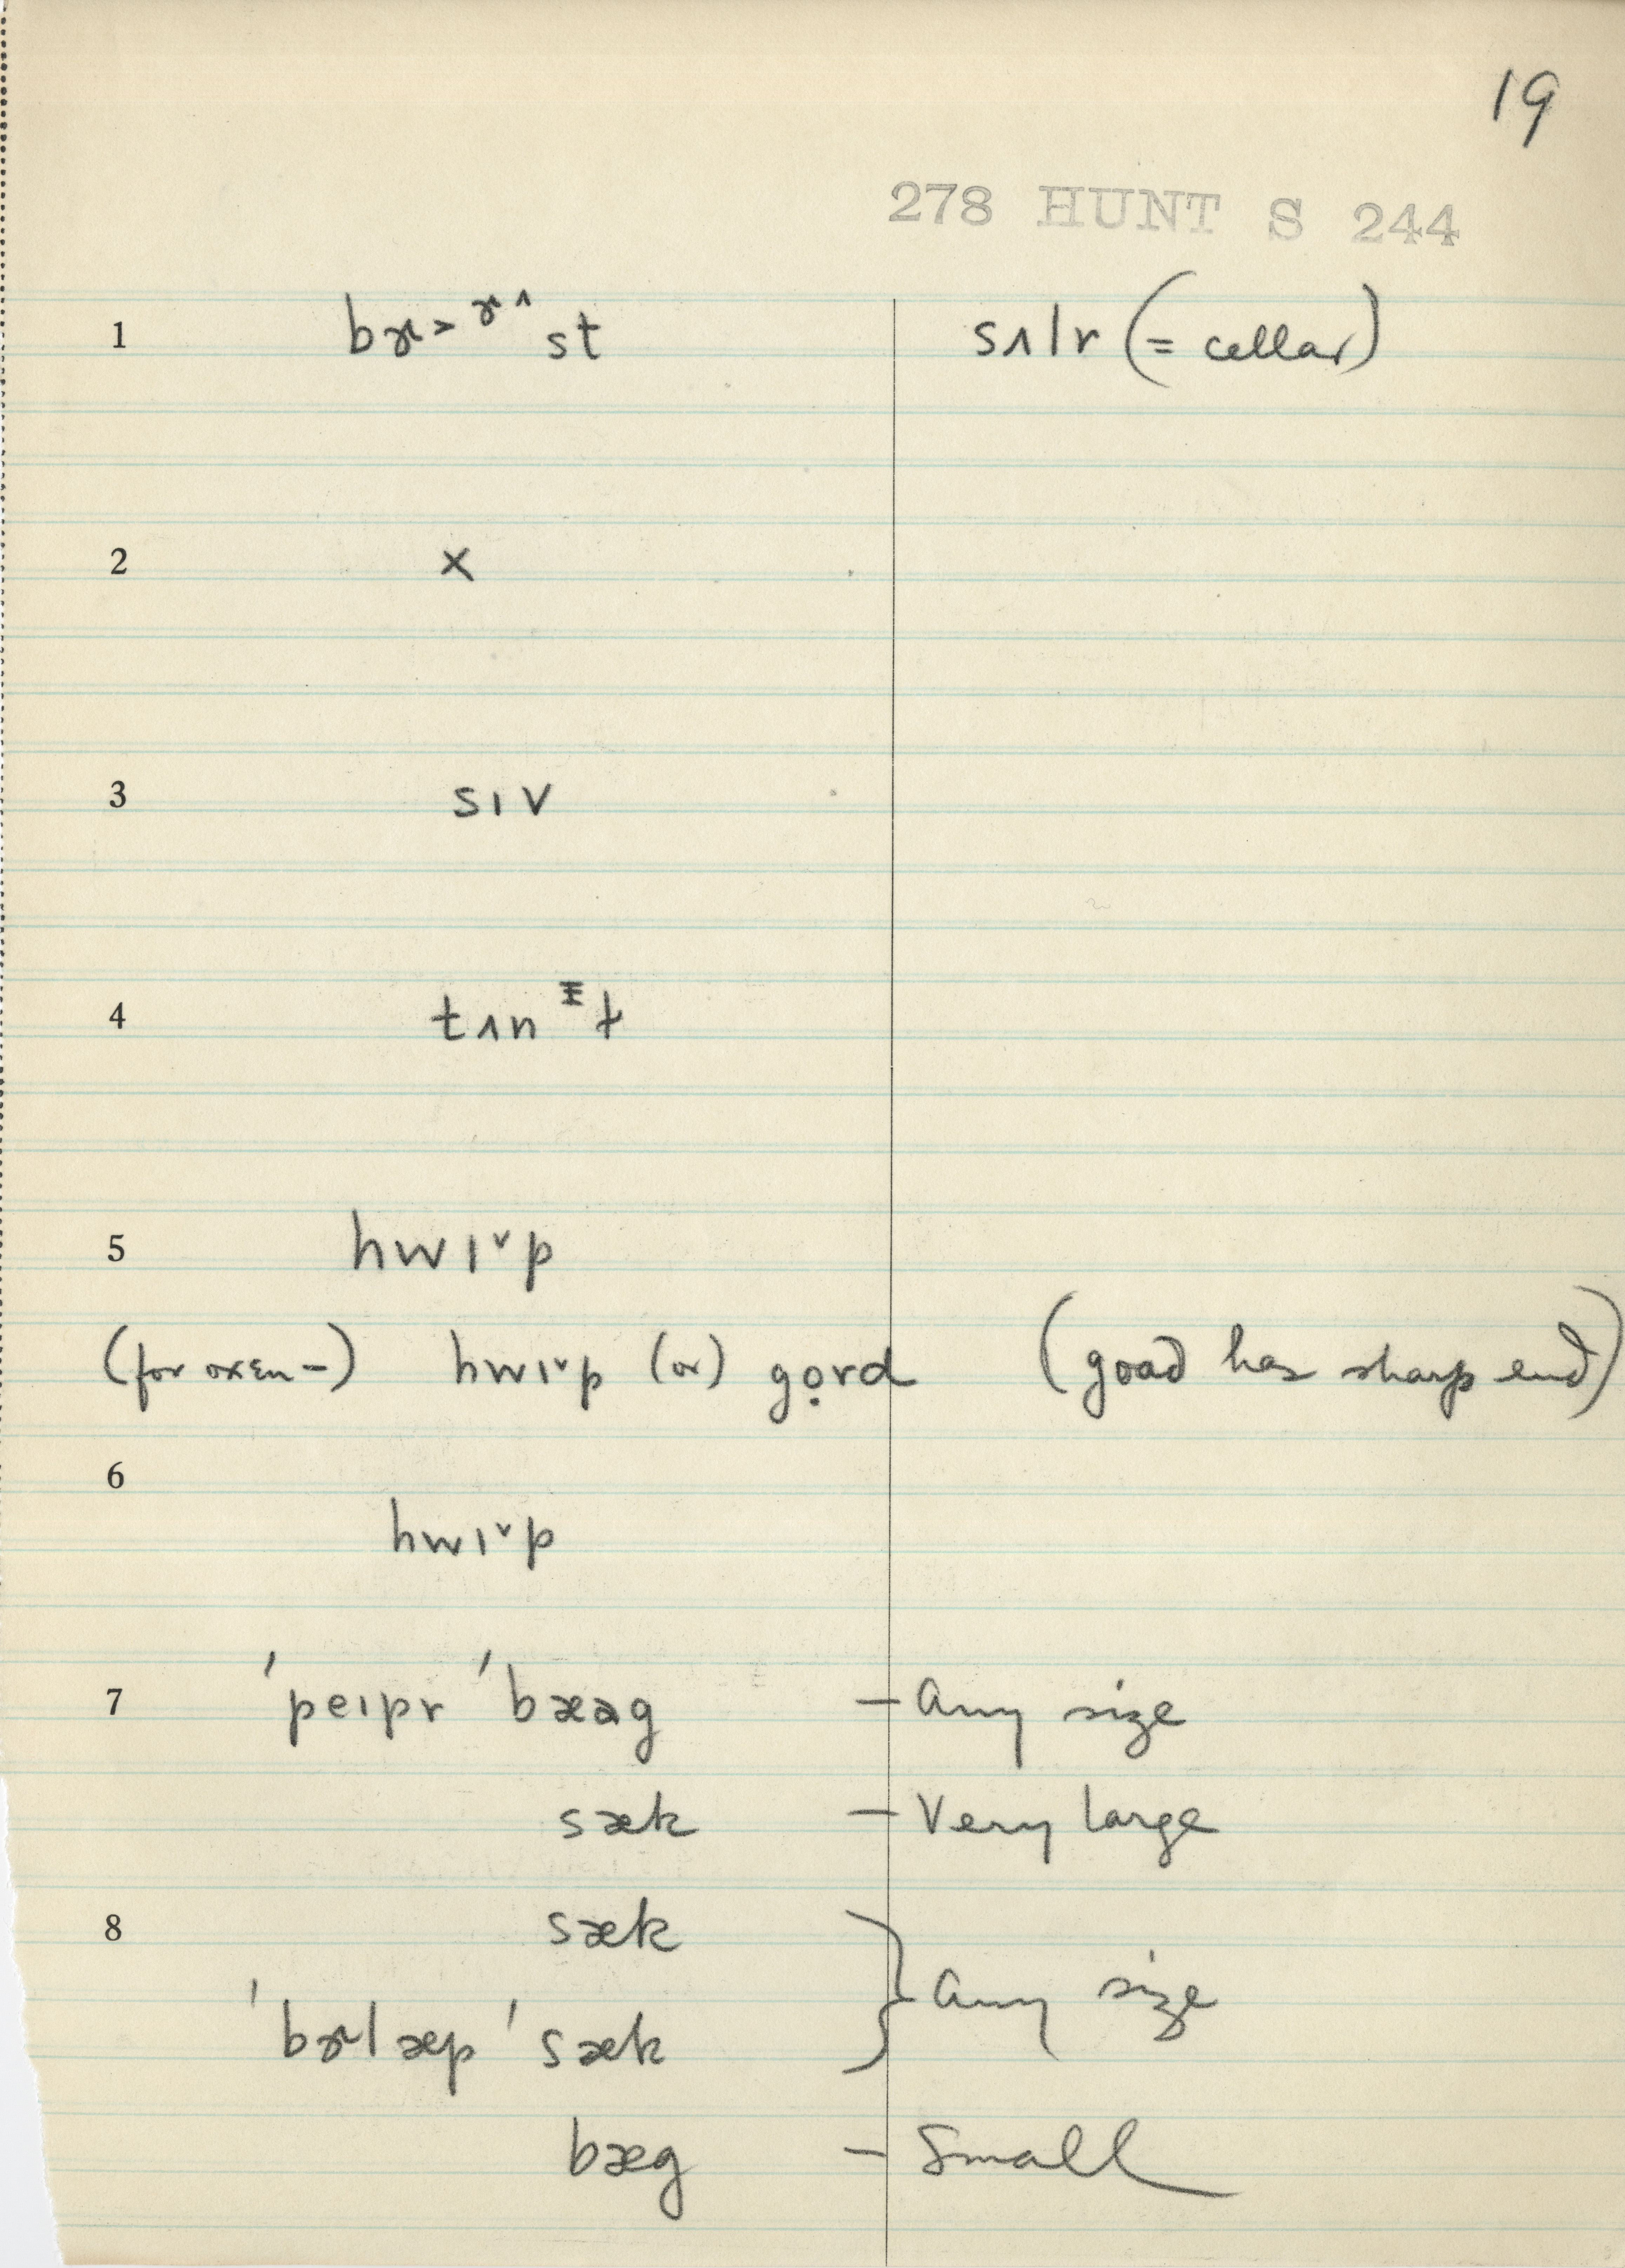 19
278 HUNT S 244
1 bɚ˃ɚ^st sʌlr (= cellar)
2 ×
3 sɪv
4 tʌnᵻɫ
5 hwɪ˅p
(for oxen –) hwɪ˅p (or) gọrd (goad has sharp end)
6
hwɪ˅p
7 'peɪpr 'bæəg – Any size
sæk – Very large
8 sæk
'bɚlæp 'sæk } Any size
bæg – Small